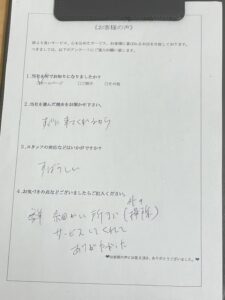 《お客様の声》
1.当社を何でお知りになりましたか?
ホームページ □ご紹介 □その他
2.当社を選んだ理由をお聞かせ下さい。
すぐに来てくれるから
3.スタッフの対応などはいかがですか?
すばらしい
4.お気づきの点などございましたらご記入ください。
細かい所まで(掃除)
サービスしてくれて
ありがたかった
♥お客様の声にお答え頂き、ありがとうございました。♥